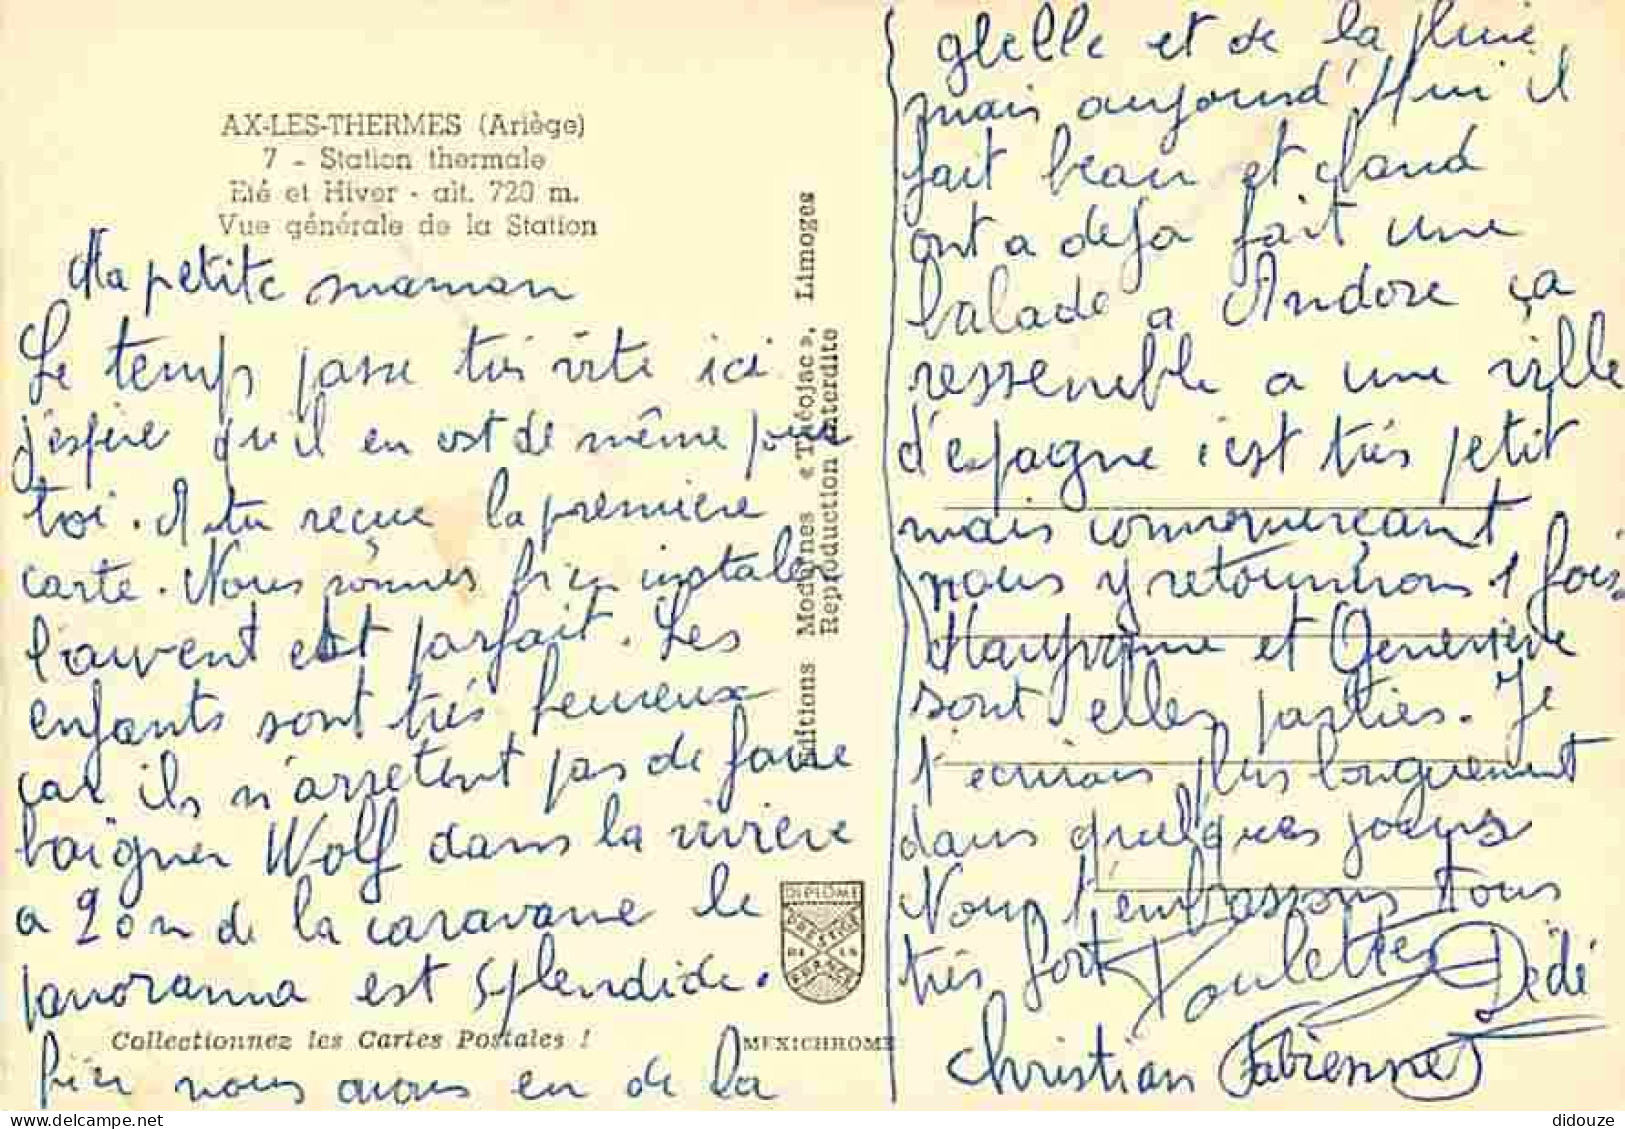 AX-LES-THERMES (Ariège)
7 - Station thermale
Eté et Hiver - alt. 720 m.
Vue générale de la Station
Ma petite maman
Le temps passe très vite ici
j'espère qu'il en est de même pour
toi. A tu reçue la première
carte. Nous sommes bien installés
l'auvent est parfait. Les
enfants sont très heureux
car ils n'arretent pas de faire
baigner Wolf dans la rivière
a 20 m de la caravane le
panorama est splendide.
hier nous avons en de la
Collectionnez les Cartes Postales !
MEXICHROME
Editions Modernes « Théojac », Limoges
Reproduction interdite
DIPLOME
PRESTIGE
DE LA
FRANCE
et de la pluie
mais aujourd'Hui il
fait beau et chaud
ont a deja fait une
balade a Andore ça
ressemble a une ville
d'espagne c'est très petit
mais commerçant
nous y retournerons 1 fois.
et Geneviève
sont elles parties. Je
t'écrirais plus longuement
dans quelques jours
Nous t'embrassons tous
très fort Poulette Dédé
Christian Fabienne
didouze